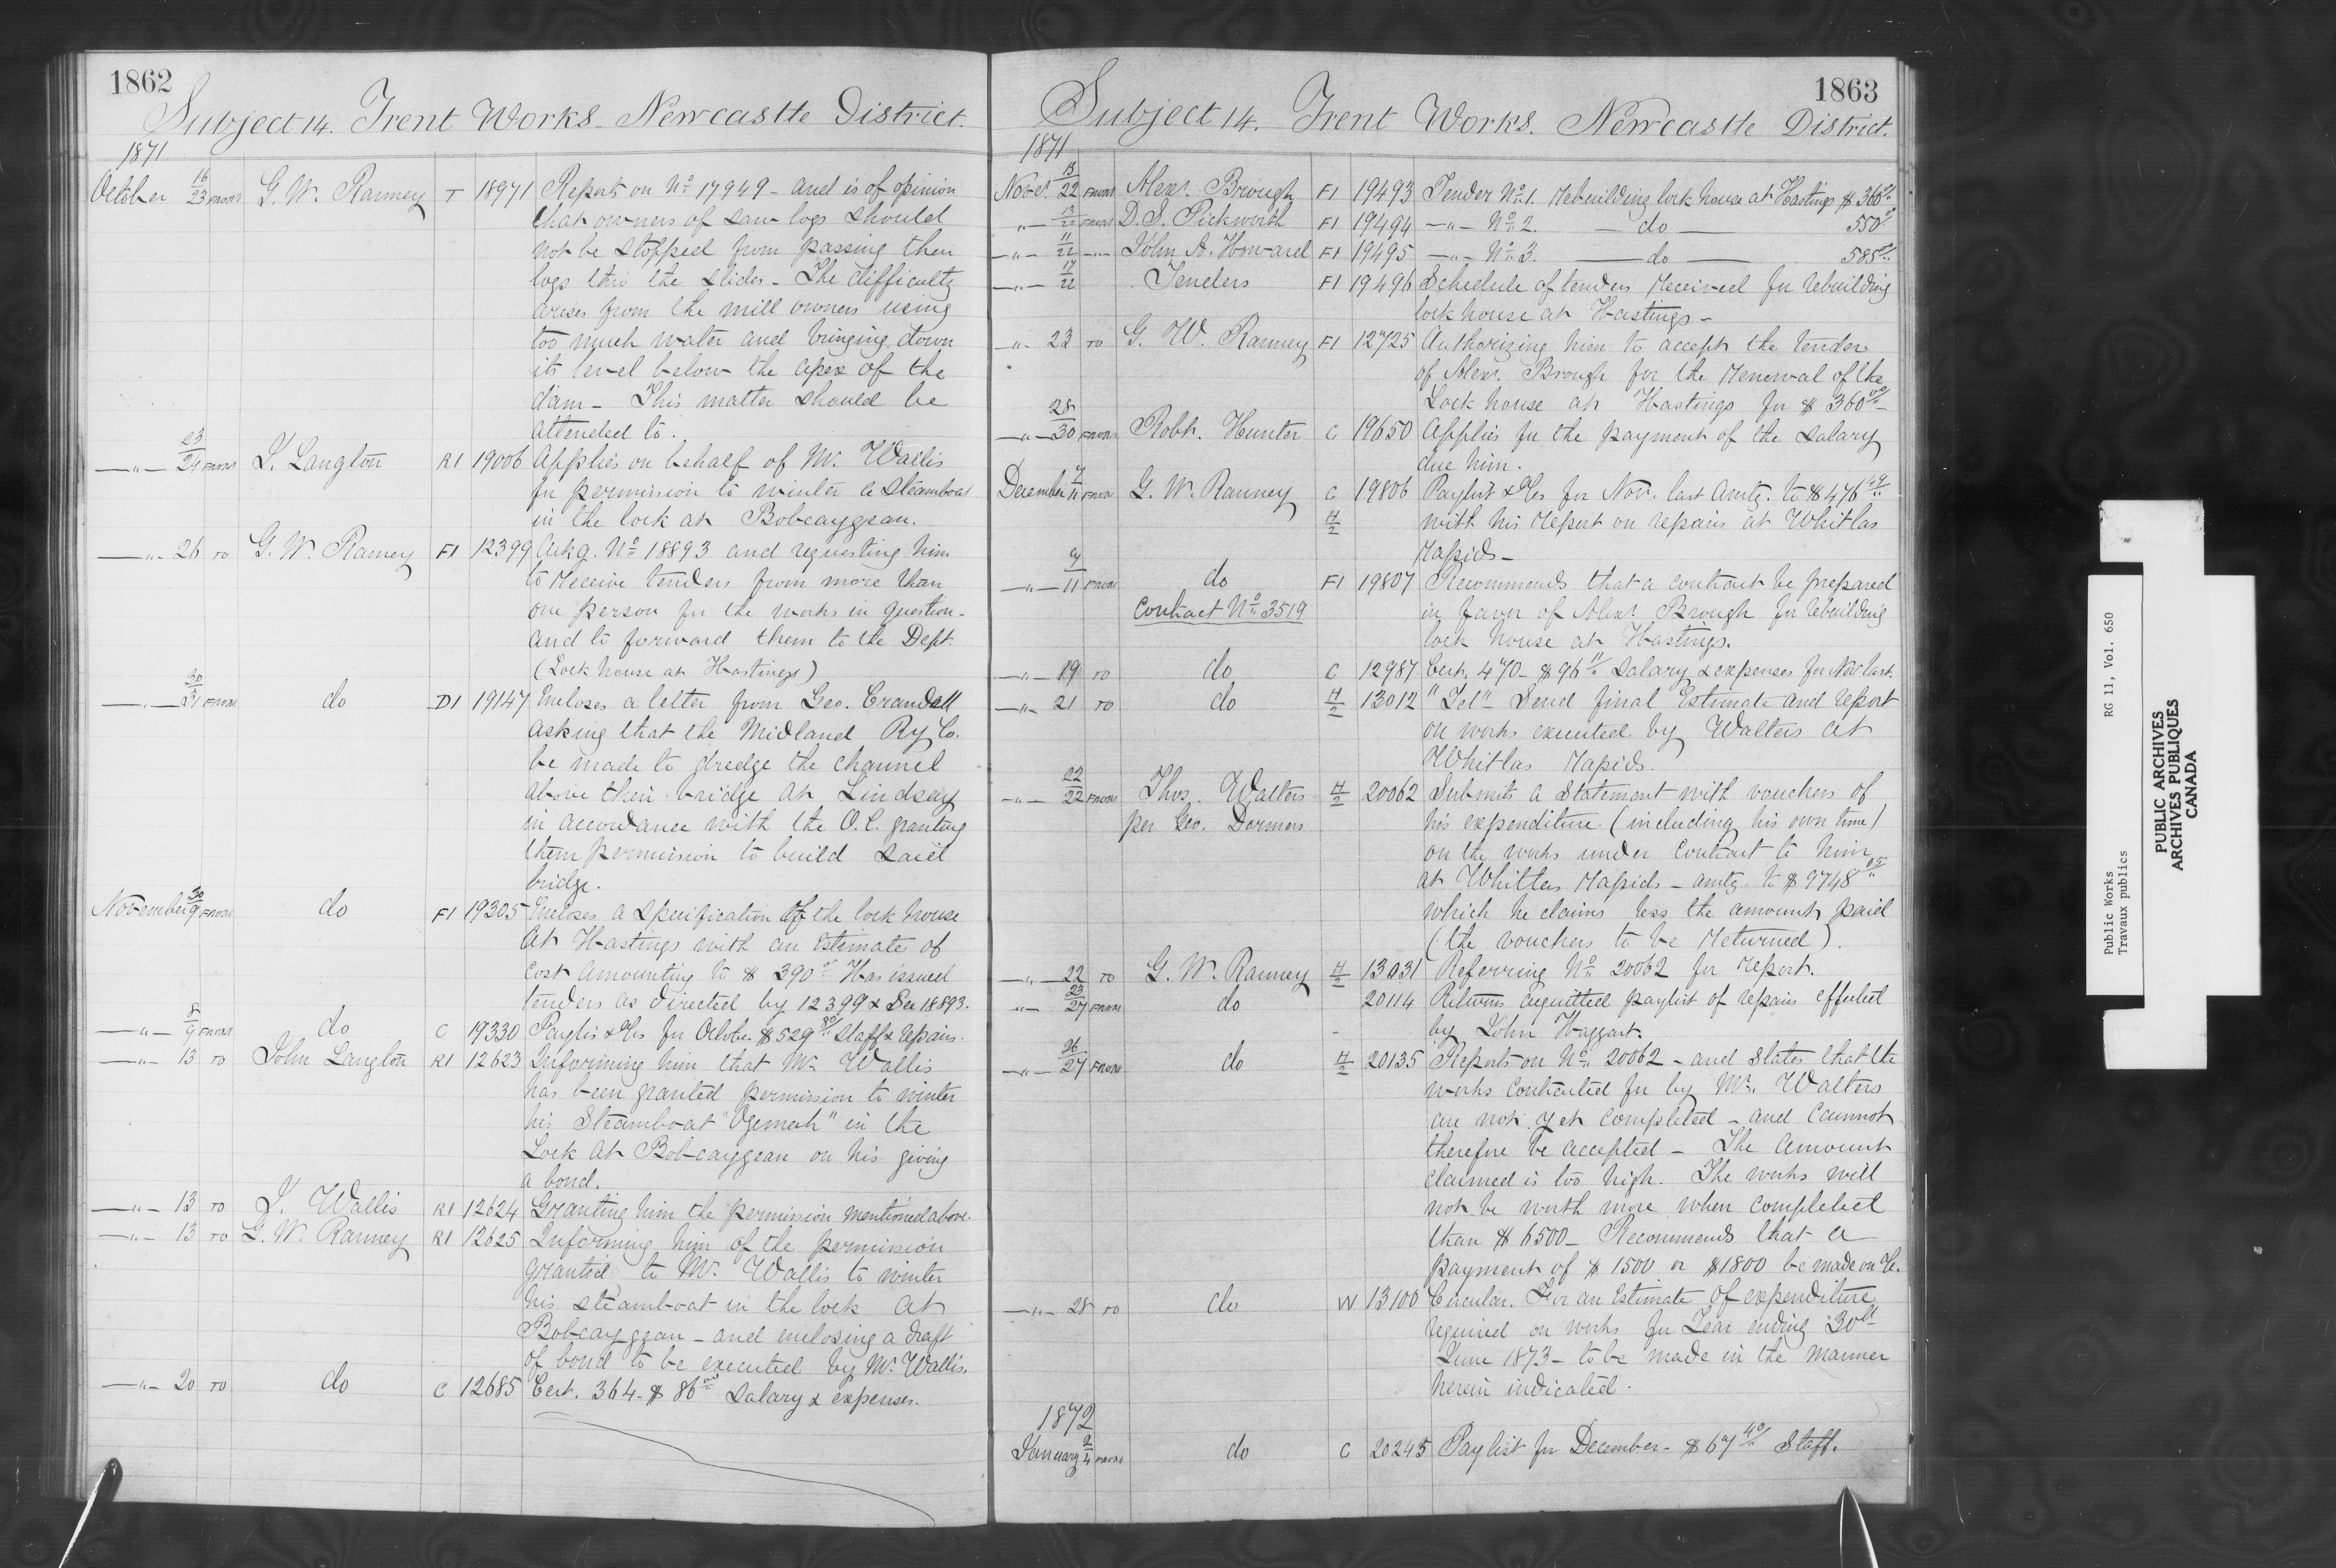 1862
Subject 14. Trent Works. Newcastle District.
1871
October 16/23 FROM G. W. Ranney T 18971 Reports on No 17949 - and is of opinion
that owners of saw logs should
not be stopped from passing their
logs thro the slides - The difficulty
arises from the mill owners using
too much water and bringing down
its level below the apex of the
dam - This matter should be
attended to.
—"— 23/24 FROM J. Langton R1 19006 Applies on behalf of Mr. Wallis
for permission to winter a steamboat
in the lock at Bobcaygean.
—"— 26 TO G. W. Ranney F1 12399 Ackg. No 18893 and requesting him
to receive tenders from more than
one person for the works in question -
and to forward them to the Dept.
(Lock house at Hastings)
—"— 30/31 FROM do D1 19147 Encloses a letter from Geo. Crandell
asking that the Midland Ry Co.
be made to dredge the channel
above their bridge at Lindsay
in accordance with the O.C. granting
them permission to build said
bridge.
November 30/9 FROM do F1 19305 Encloses a specification of the lock house
at Hastings with an estimate of
cost amounting to $ 390 Has issued
tenders as directed by 12399 & See 18893.
—"— 8/9 FROM do C 19330 Paylis & c/s for October $529 80 Staff & repairs.
—"— 13 TO John Langton R1 12623 Informing him that Mr Wallis
has been granted permission to winter
his Steamboat "Ogemah" in the
Lock at Bobcaygean on his giving
a bond.
—"— 13 TO J. Wallis R1 12624 Granting him the permission mentioned above.
—"— 13 TO G. W. Ranney R1 12625 Informing him of the permission
granted to Mr. Wallis to winter
his steamboat in the lock at
Bobcaygean - and enclosing a draft
of bond to be executed by Mr Wallis.
—"— 20 TO do C 12685 Cert. 364 - $ 86 00 Salary & expenses.
1863
Subject 14. Trent Works. Newcastle District.
1871
Novr. 13/22 FROM Alexr. Brough F1 19493 Tender No 1. Rebuilding lock house at Hastings $ 360
" — 13/22 FROM D. S. Pickworth F1 19494 —"— No 2. — do — 550
—"— 11/22 —"— John A. Howard F1 19495 —"— No 3. — do — 585
—"— 17/22 Tenders F1 19496 Schedule of tenders received for rebuilding
lock house at Hastings -
—"— 23 TO G. W. Ranney F1 12725 Authorizing him to accept the tender
of Alexr. Brough for the renewal of the
Lock house at Hastings for $ 360 00
—"— 28/30 FROM Robt. Hunter C 19650 Applies for the payment of the salary
due him.
December 7/11 FROM G. W. Ranney C 19806 Paylist & c/s for Nov. last amtg. to $ 476 49
H/2 with his report on repairs at Whitlas
Rapids -
—"— 9/11 FROM do F1 19807 Recommends that a contract be prepared
Contract No 3519 in favor of Alexr Brough for rebuilding
lock house at Hastings.
—"— 19 TO do C 12987 Cert. 470 - $ 96 11 Salary & expenses for Nov last.
—"— 21 TO do H/2 13012 "Tel" Send final Estimate and report
on works executed by Walters at
Whitlas Rapids.
—"— 22/22 FROM Thos. Walters H/2 20062 Submits a statement with vouchers of
per Geo. Dormer his expenditure (including his own time)
on the works under contract to him
at Whitlas Rapids - amtg. to $ 9748 05
which he claims less the amount paid
(the vouchers to be returned).
—"— 22 TO G. W. Ranney H/2 13031 Referring No 20062 for report.
—"— 23/27 FROM do 20114 Returns acquitted paylist of repairs effected
by John Haggart.
—"— 26/27 FROM do H/2 20135 Reports on No 20062 - and states that the
works contracted for by Mr. Walters
are not yet completed - and cannot
therefore be accepted - The amount
claimed is too high. The works will
not be worth more when completed
than $ 6500 - Recommends that a
payment of $ 1500 or $1800 be made on %.
—"— 28 TO do W 13100 Circular. For an Estimate of expenditure
required on works for Year ending 30th
June 1873 - to be made in the manner
herein indicated.
1872
January 2/4 FROM do C 20245 Paylist for December - $ 67 40 Staff.
Public Works
Travaux publics
RG 11, Vol. 650
PUBLIC ARCHIVES
ARCHIVES PUBLIQUES
CANADA